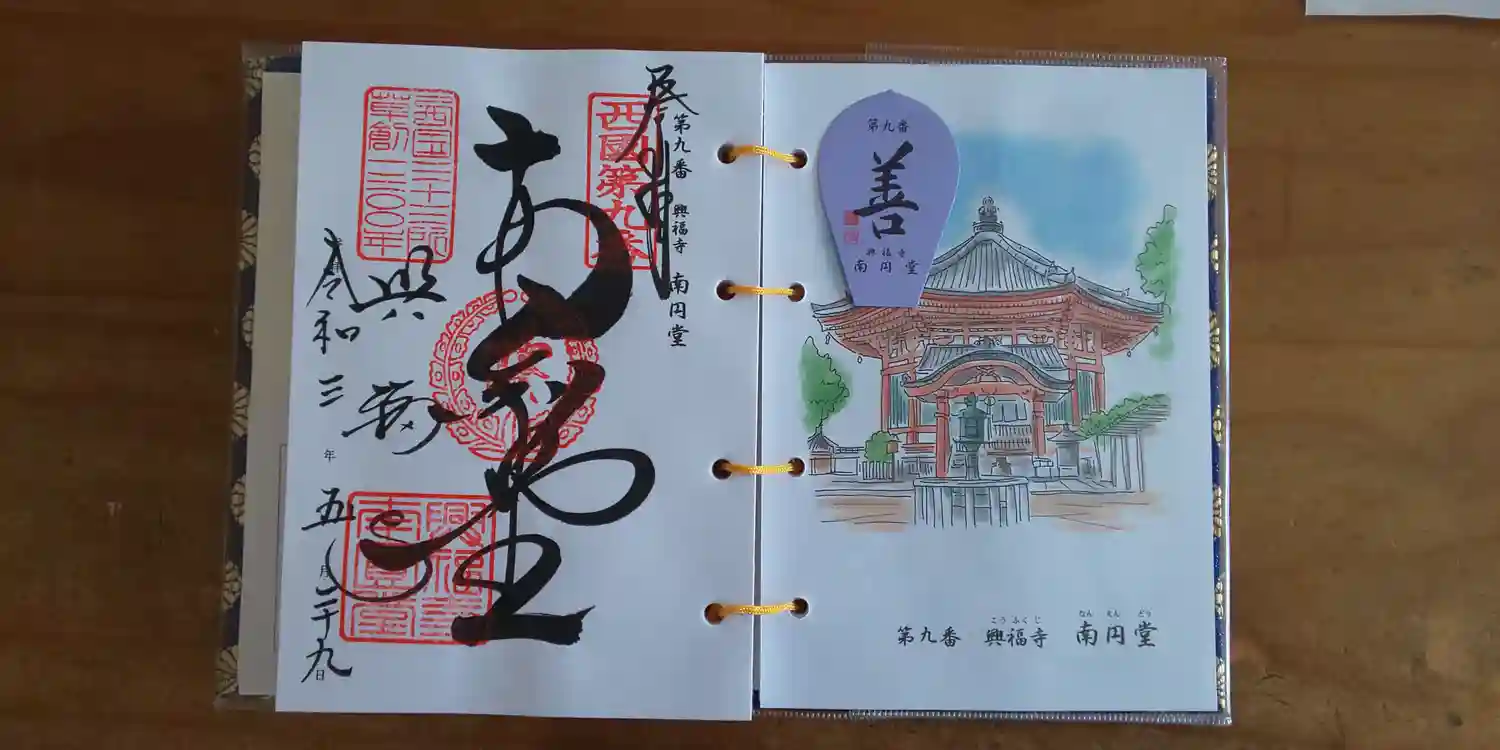 奉拝
第九番 興福寺 南円堂
西國第九番
南圓堂
西国三十三所
草創一三〇〇年
興福寺
興福寺
南圓堂
令和三年五月二十九日
第九番
善
興福寺
南円堂
こうふくじ なんえんどう
第九番 興福寺 南円堂